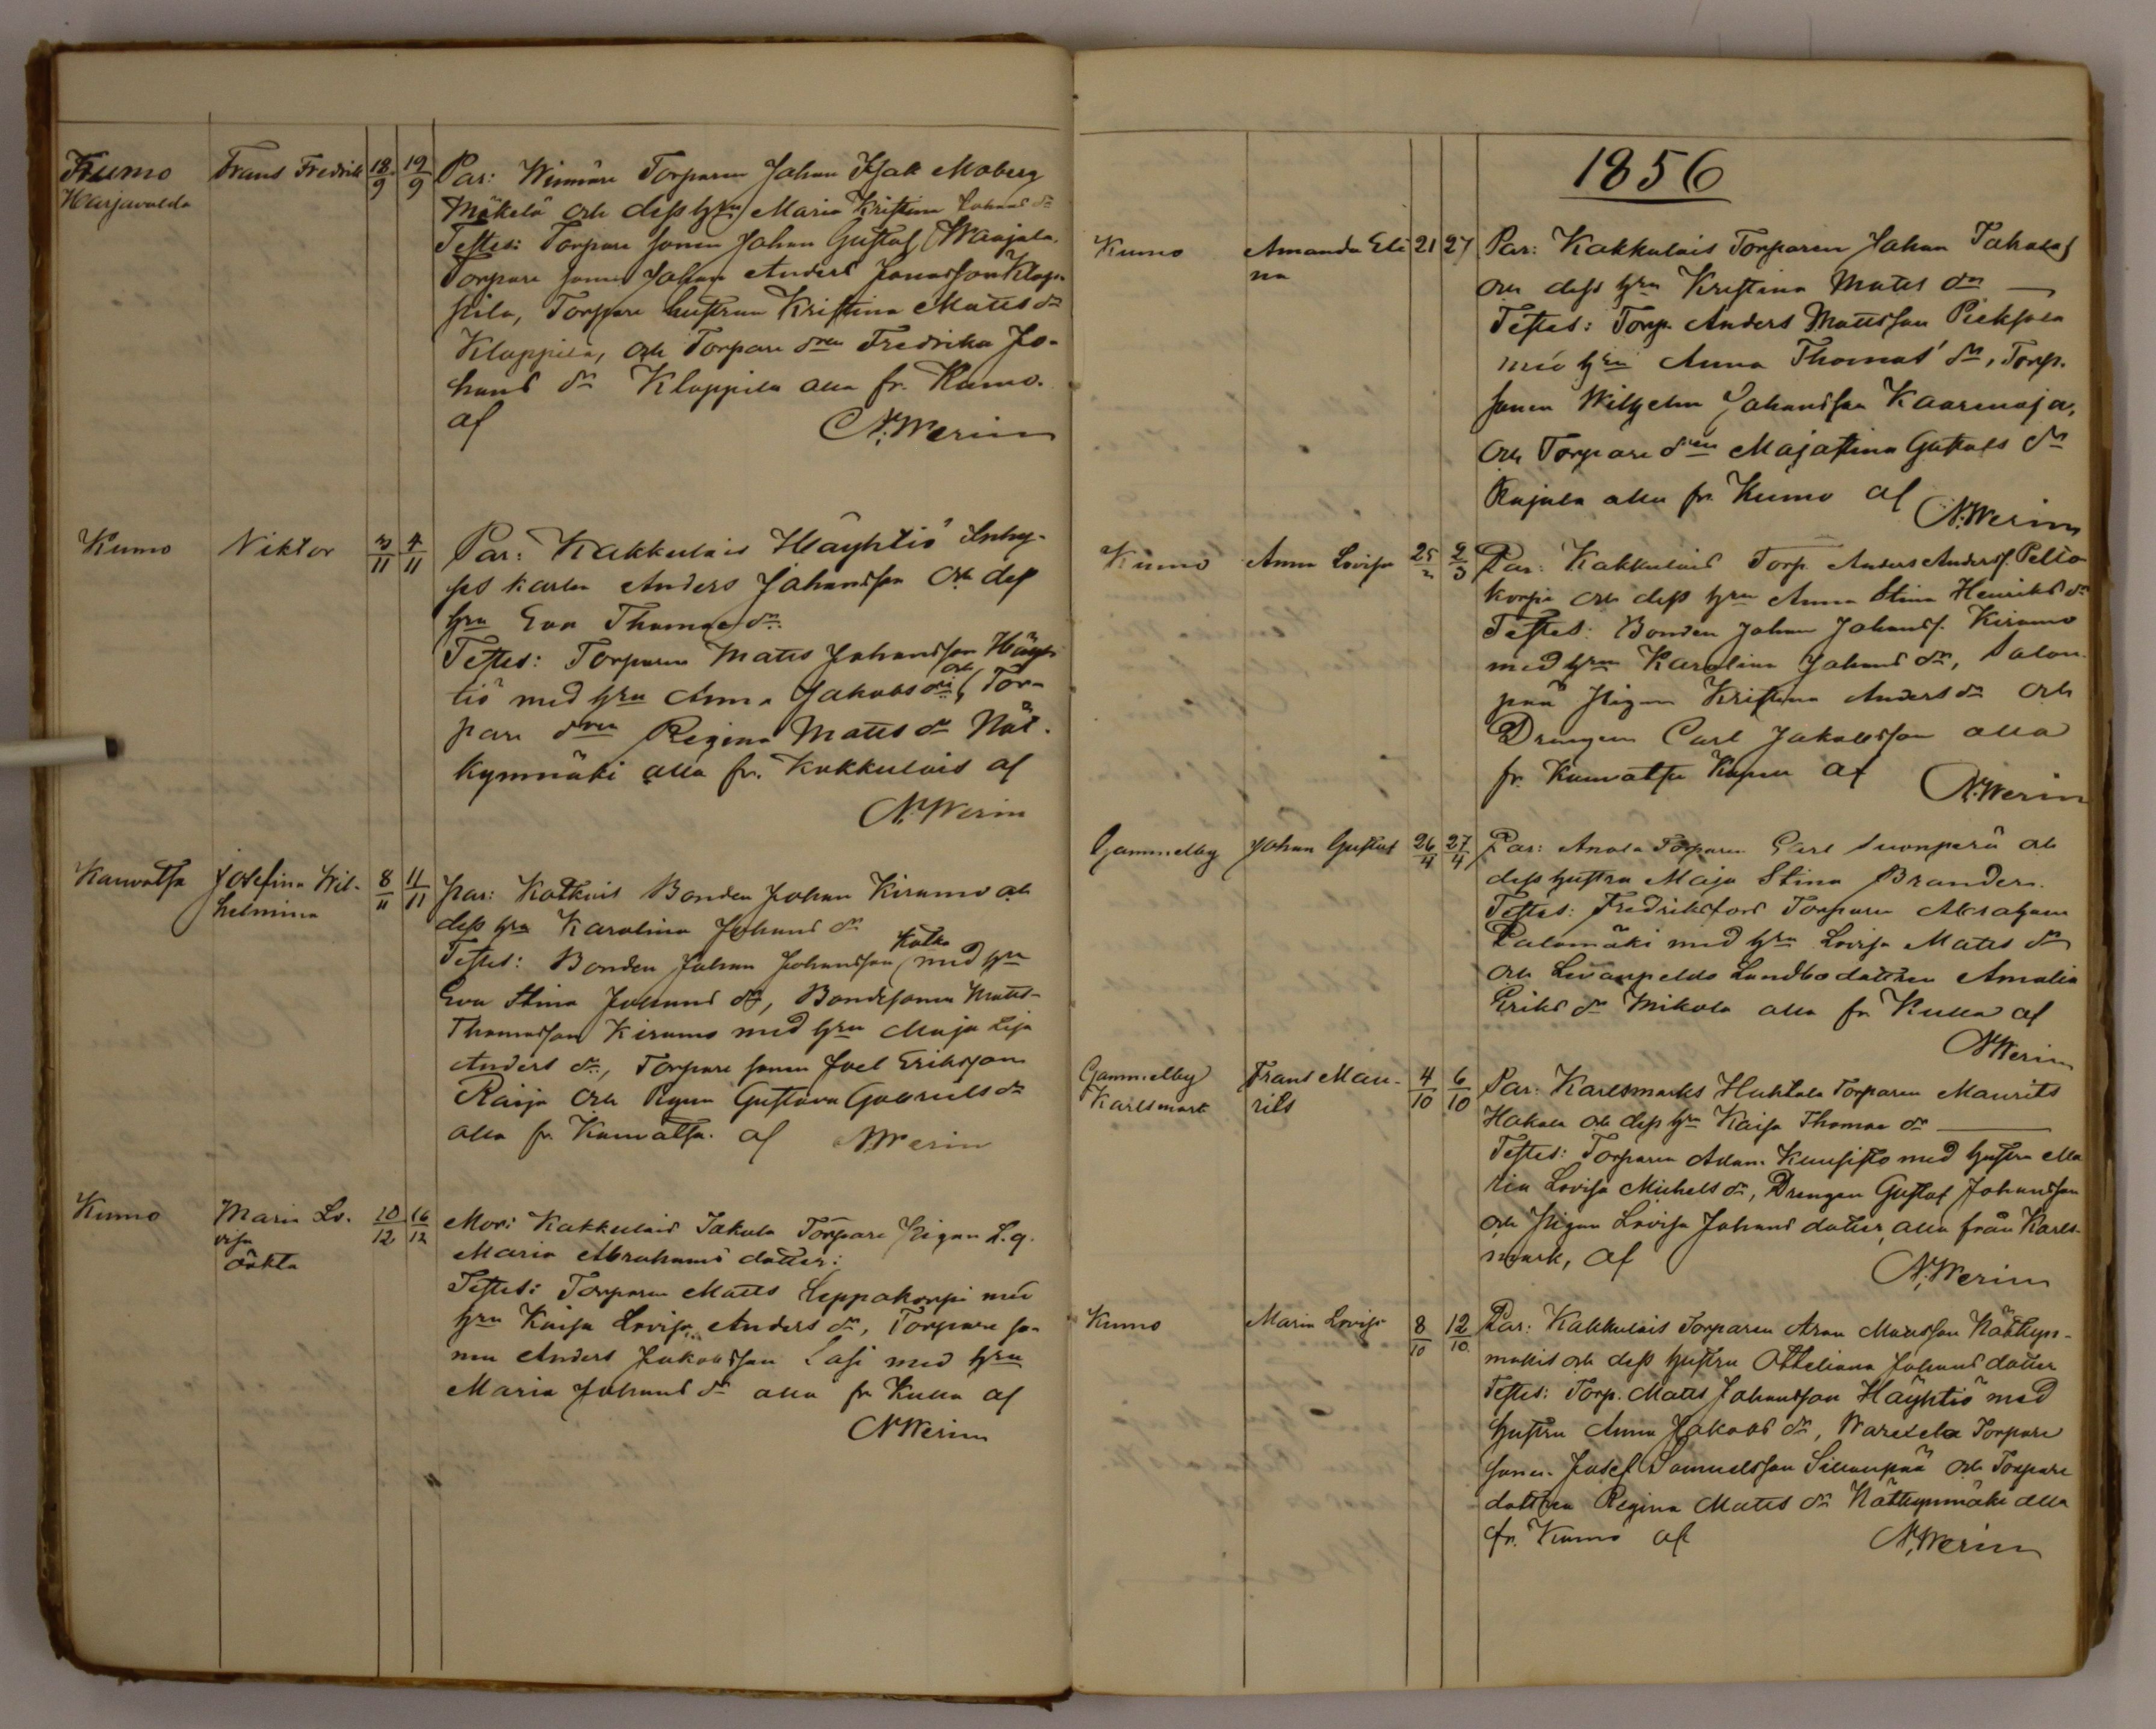 Kumo Frans Fredrik 18/9 19/9 Par: Torparen Johan Isak Moberg
Harjavalda Mäkelä och dess hru Maria Kristina Johans dr
Testes: Torpare sonen Johan Gustaf
Torpare sonen Johan Anders Jonasson Klop-
pila, Torpare hustrun Kristina Matts dr
Kloppila, och Torpare dren Fredrika Jo-
hans dr Kloppila alla fr. Kumo.
af N. Werin
Kumo Viktor 3/11 4/11 Par: Kakkulais Häyhtiö Inhy-
ses karlen Anders Johansson och dess
hru Eva Thomae dr.
Testes: Torparen Matts Johansson Häyh-
tiö med hru Anna Jakobs dr och Tor-
pare dren Regina Matts dr Nät-
kynmäki alla fr. Kakkulais af
N. Werin
Kauvatsa Josefina Wil- 8/11 11/11 Par: Bonden Johan Kiramo och
helmina dess hru Karolina Johans dr
Testes: Bonden Johan Johansson Katka med hru
Eva Stina Johans dr, Bondesonen Matts
Thomasson Kiramo med hru Maja Lisa
Anders dr, Torpare sonen Joel Eriksson
Raija och Pigan Gustava Gabriels dr
alla fr. Kauvatsa. af N. Werin
Kumo Maria Lo- 10/12 16/12 Mor: Kakkulais Jakola Torpare Pigan L.q.
visa Maria Abrahams dotter:
oäkta
Testes: Torparen Matts Leppäkorpi med
hru Kaisa Lovisa Anders dr, Torpare so-
nen Anders Jakobsson Lasi med hru
Maria Johans dr alla fr. Kulla af
N. Werin
1856
Kumo Amanda Eli- 21 27 Par: Kakkulais Torparen Johan
na och dess hru Kristina Matts dr
Testes: Torp. Anders Mattsson
med hru Anna Thomas dr, Torp.
sonen Wilhelm Johansson Kaarenoja,
och Torpare dren Majastina Gustafs dr
Rajala alla fr. Kumo af N. Werin
Kumo Anna Lovisa 25/2 2/3 Par: Kakkulais Torp. Anders Anderss. Pelto-
korpi och dess hru Anna Stina Henriks dr
Testes: Bonden Johan Johanss. Kiramo
med hru Karolina Johans dr, Salon-
pää Pigan Kristina Anders dr och
Drengen Carl Jakobsson alla
fr. Kauvatsa Kapell af N. Werin
Gammelby Johan Gustaf 26/4 27/4 Par: Anola Torparen Carl Suonperä och
dess hustru Maja Stina Brander.
Testes: Fredriksfors Torparen Abraham
Palomäki med hru Lovisa Matts dr
och Levanpelto Landbodottren Amalia
Eriks dr Mikola alla fr Kulla af
N. Werin
Gammelby Frans Mau- 4/10 6/10 Par: Karlsmarks Huhtala Torparen Maurits
Karlsmark rits Hakala och dess hru Kaisa Thomae dr
Testes: Torparen Adam Kuusisto med hustru Ma-
ria Lovisa Michels dr, Drengen Gustaf Johansson
och Pigan Lovisa Johans dotter, alla från Karls-
mark, af N. Werin
Kumo Maria Lovisa 8/10 12/10 Par: Kakkulais Torparen Aron Mattsson Nätkyn-
mäkis och dess hustru Otteliana Johans dotter
Testes: Torp. Matts Johansson Häyhtiö med
hustru Anna Jakobs dr, Torpare
sonen Josef Samuelsson Sillanpää och Torpare
dottren Regina Matts dr Nätkynmäki alla
fr. Kumo af N. Werin